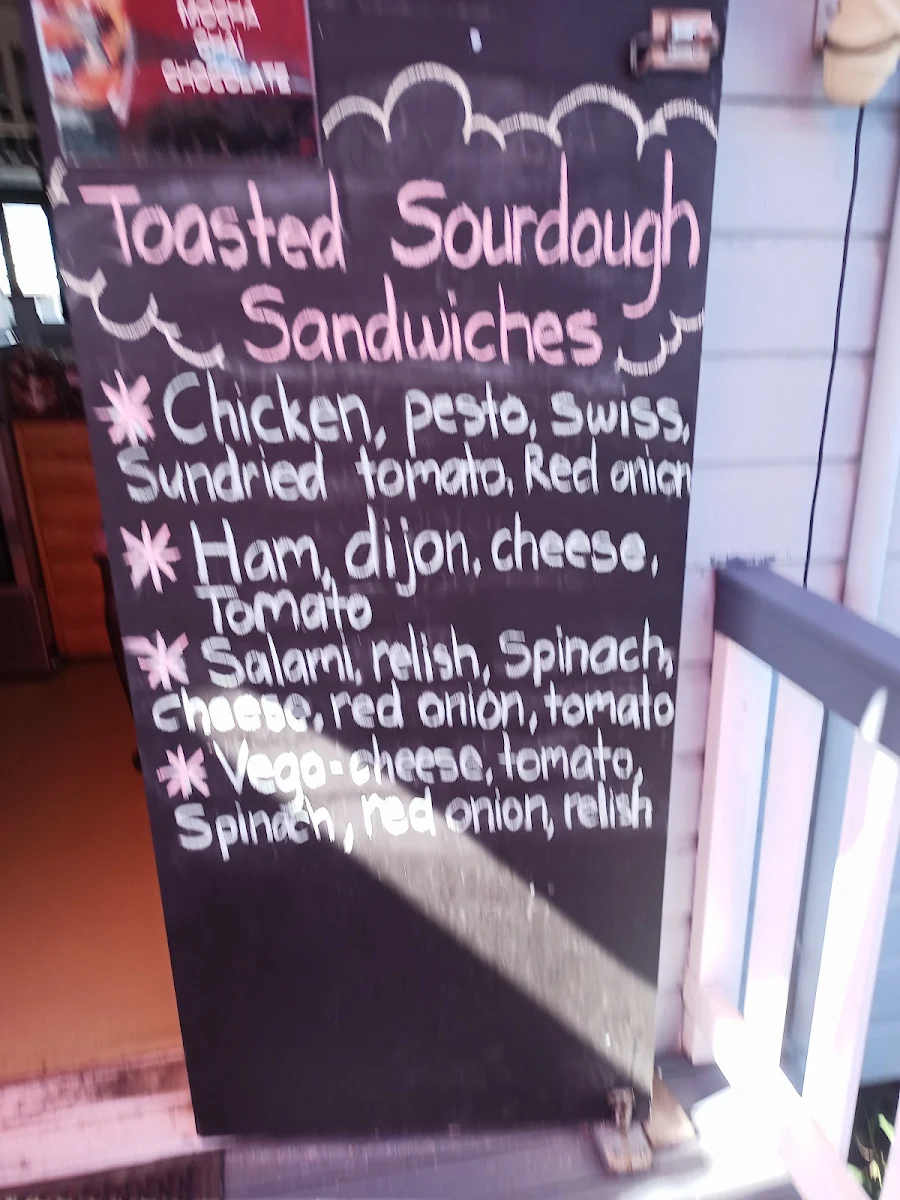 MOCHA
CHAI
CHOCOLATE
Toasted Sourdough
Sandwiches
Chicken, pesto, swiss,
Sundried tomato, Red onion
Ham, dijon, cheese,
Tomato
Salami, relish, Spinach,
cheese, red onion, tomato
Vego-cheese, tomato,
Spinach, red onion, relish